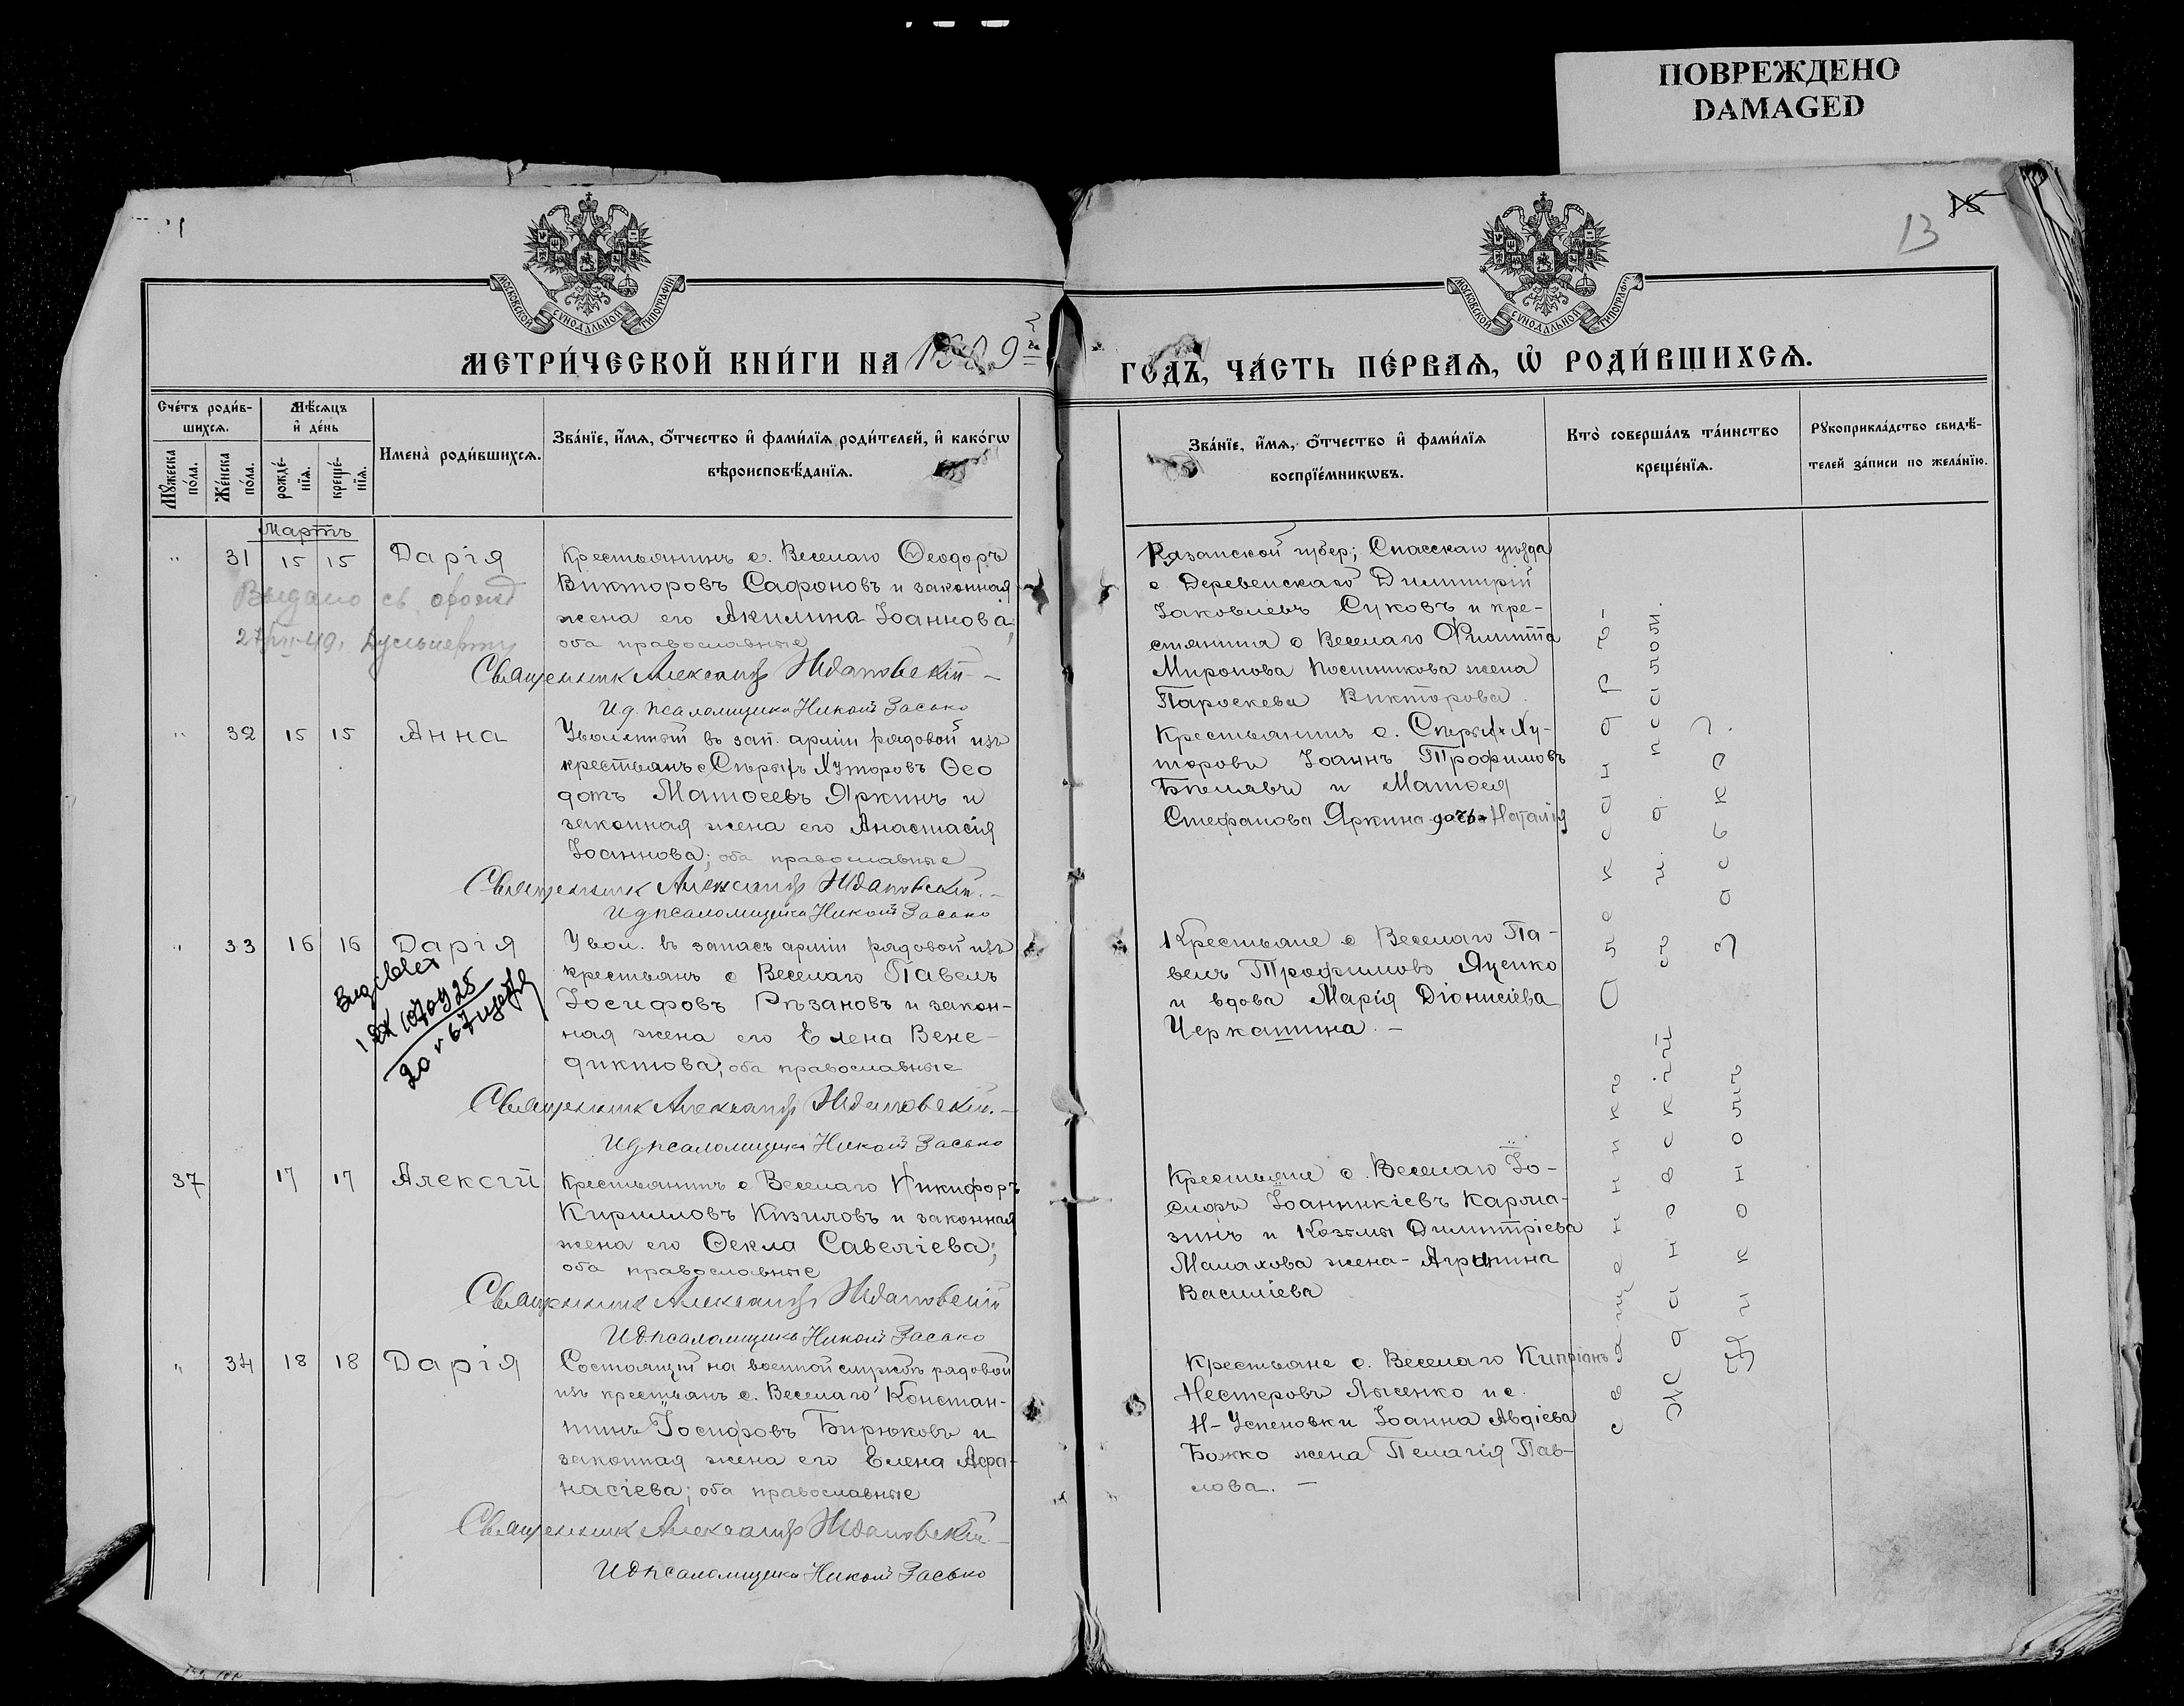 ПОВРЕЖДЕНО
DAMAGED
13
МОСКОВСКОЙ СѴНОДАЛЬНОЙ ТИПОГРАФІИ
МОСКОВСКОЙ СѴНОДАЛЬНОЙ ТИПОГРАФІИ
МЕТРИ́ЧЕСКОЙ КНИ́ГИ НА
ГОДЪ, ЧА́СТЬ ПЕ́РВАѦ, Ѽ РОДИ́ВШИХСѦ.
Сче́тъ роди́в-
шихсѧ.
Мѣ́сѧцъ
и҆ де́нь
Имена̀ роди́вшихсѧ.
Зва́нїе, и҆́мѧ, ѻ҆́тчество и҆ фами́лїѧ роди́телей, и҆ како́гѡ
вѣроисповѣ́данїѧ.
Мꙋ́жеска по́ла.
Же́нска по́ла.
рожде́-
нїѧ.
креще́-
нїѧ.
Зва́нїе, и҆́мѧ, ѻ҆́тчество и҆ фами́лїѧ
воспрїе́мникѡвъ.
Кто̀ соверша́лъ та́инство
креще́нїѧ.
Рꙋкоприкла́дство свидѣ́-
телей за́писи по жела́нїю.
Мартъ
" 31 15 15 Дарія
Крестьянинъ с. Веселаго Ѳеодоръ
Викторовъ Сафоновъ и законная
жена его Акилина Іоаннова;
оба православные
Выдано св.
Священник Александр Ждановскій
И д. псаломщика Никол Засько
Казанской губер; Спасскаго уезда
с. Деревенскаго Димитрій
Іаковлевъ Суковъ и кре-
стянина с Веселаго Филиппа
Миронова Постникова жена
Параскева Викторова.
" 32 15 15 Анна
Уволенный въ зап. арміи рядовой изъ
крестьянъ с Старыхъ Хуторовъ Ѳео
дотъ Матѳеевъ Яркинъ и
законная жена его Анастасія
Іоаннова; оба православные
Священник Александр Ждановскій.
И д псаломщика Никол Засько
Крестьянинъ с. Старыхъ Ху-
торовъ Іоаннъ Трофимовъ
и Матѳея
Стефанова Яркина дочь Наталія
" 33 16 16 Дарія
Увол. въ запасъ арміи рядовой изъ
крестьянъ с Веселаго Павелъ
Іосифовъ Рѣзановъ и закон-
ная жена его Елена Вене-
диктова; оба православные
Священник Александр Ждановскій.
И д псаломщика Никол Засько
Крестьяне с Веселаго Па-
велъ Трофимовъ Яценко
и вдова Марія Діонисіева
Черкашина. –
37 17 17 Алексій
Крестьянинъ с Веселаго Никифоръ
Кирилловъ Кизиловъ и законная
жена его Ѳекла Савеліева;
оба православные
Священник Александр Ждановскій
И д псаломщика Никол Засько
Крестьяне с. Веселаго Іо-
сифъ Іоанникіевъ Карма-
зинъ и Козьмы Димитріева
Малахова жена – Агрипина
Василіева
" 34 18 18 Дарія
Состоящій на военной службѣ рядовой
изъ крестьянъ с. Веселаго Констан-
тинъ Іосифовъ Бирюковъ и
законная жена его Елена Аѳа-
насіева; оба православные
Священник Александр Ждановскій
И д псаломщика Никол Засько
Крестьяне с. Веселаго Кипріанъ
Нестеровъ Лысенко и с.
Н-Успеновки Іоанна Авдіева
Божко жена Пелагія Пав-
лова. –
Священникъ Александръ
Ждановскій съ и. д. псалом.
Николай Засько